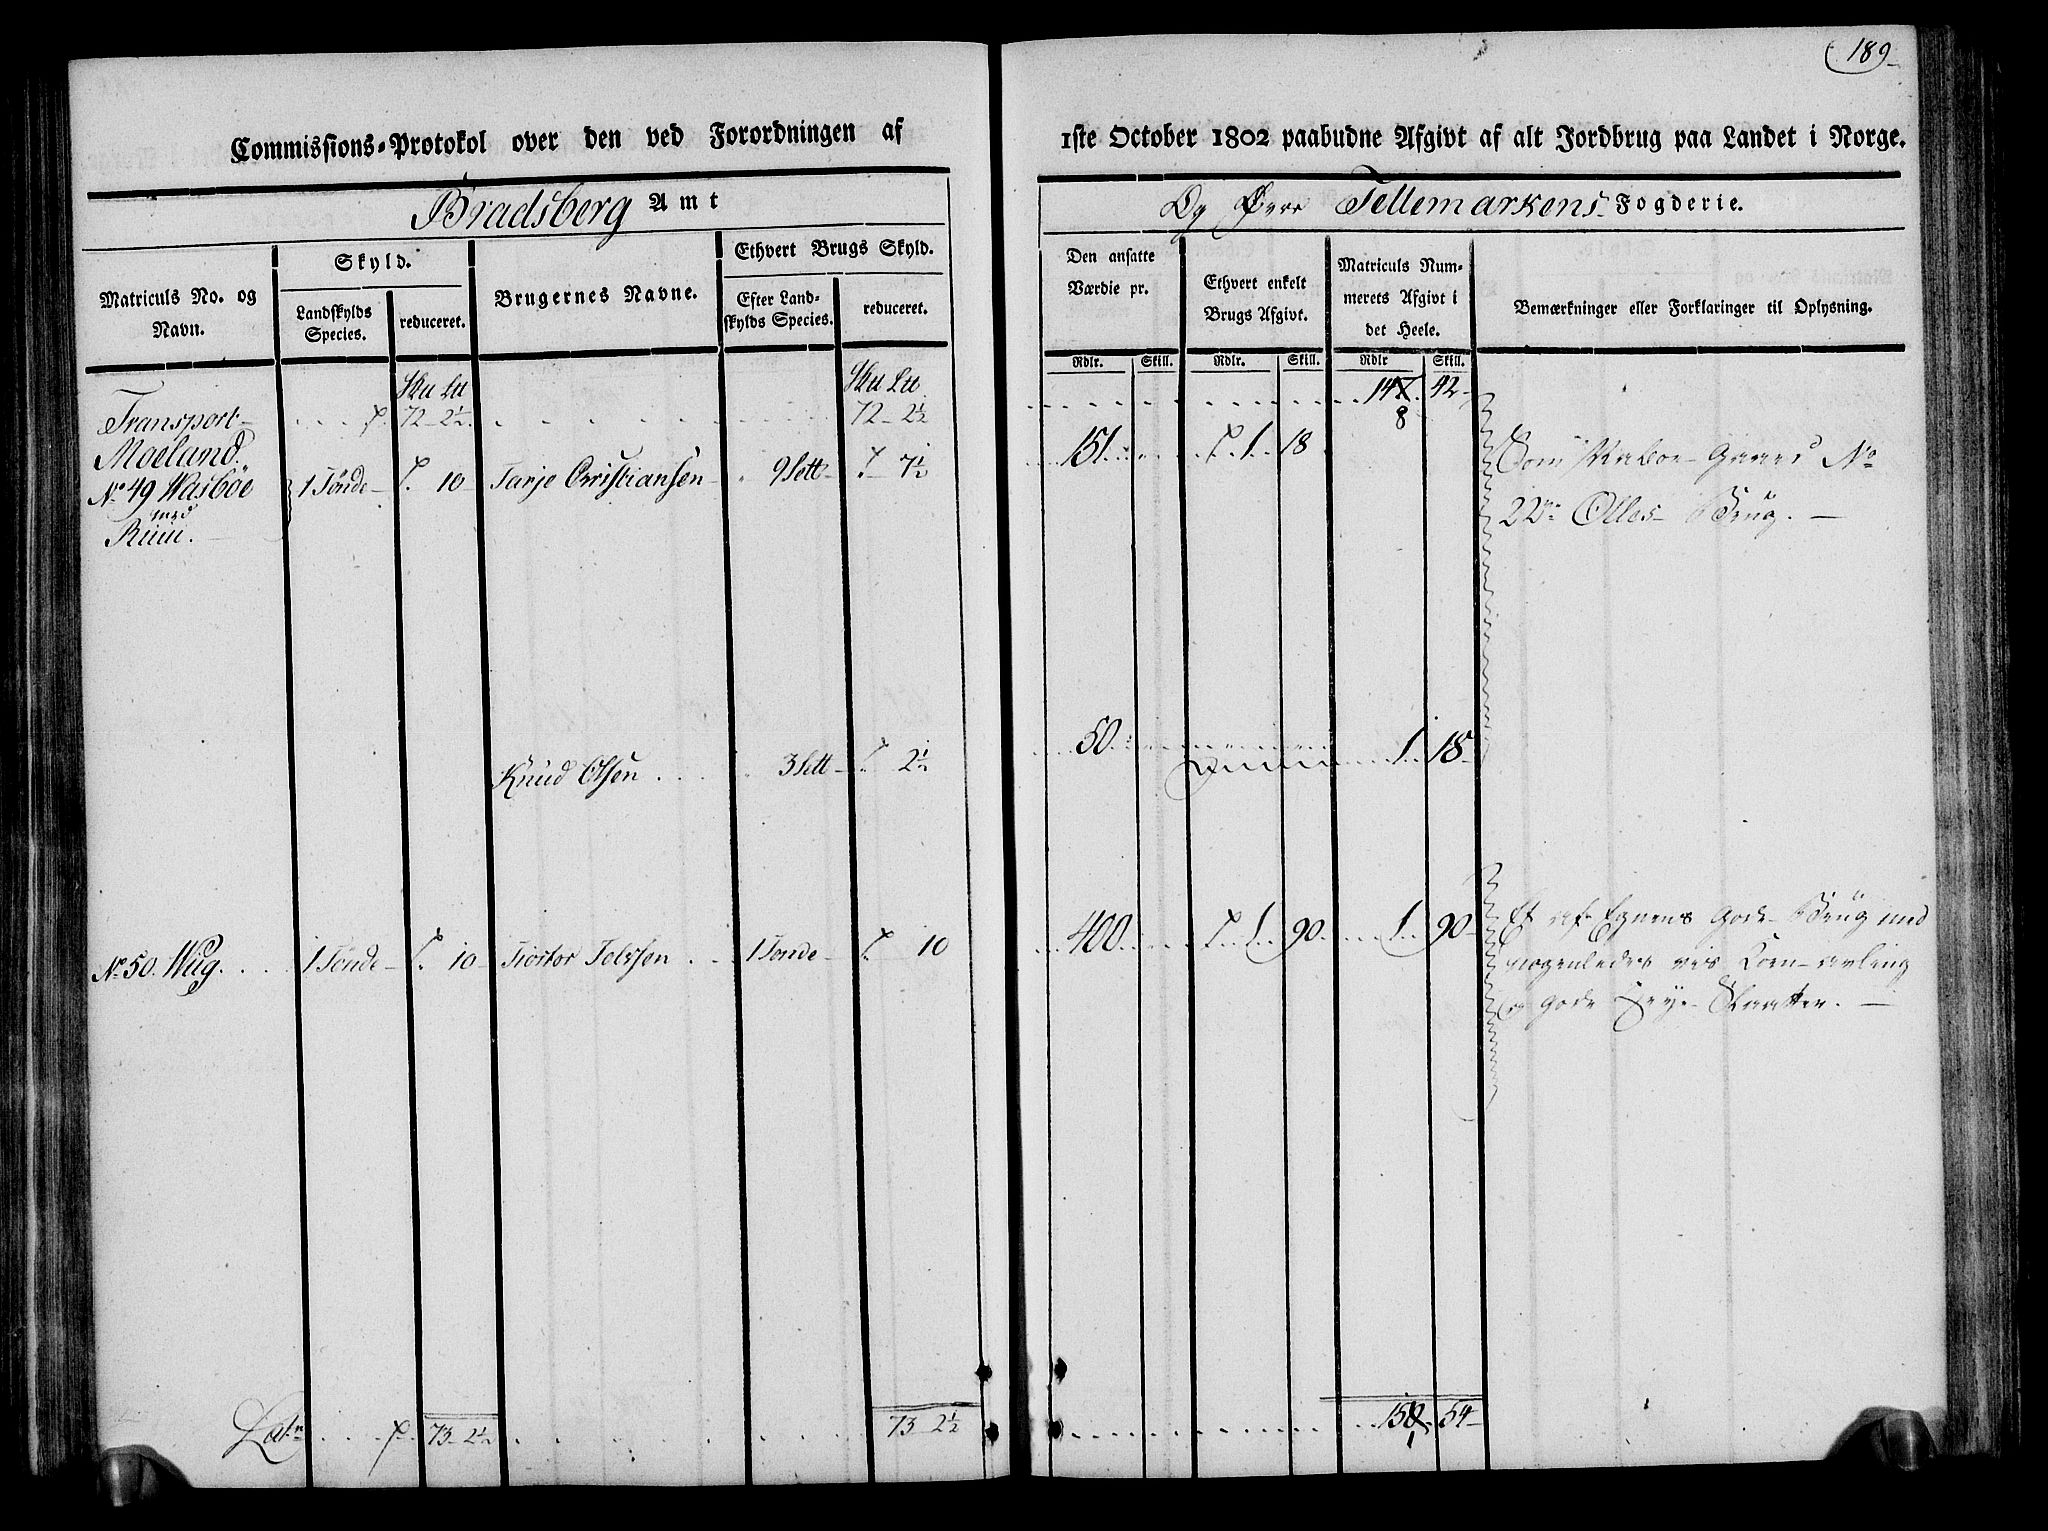 189
Commissions-Protokol over den ved Forordningen af
1ste October 1802 paabudne Afgivt af alt Jordbrug paa Landet i Norge.
Bradsberg Amt
Og Øvre Tellemarkens Fogderie.
Matriculs No. og Navn.
Skyld.
Landskylds Species.
reduceret.
Brugernes Navne.
Ethvert Brugs Skyld.
Efter Landskylds Species.
reduceret.
Den ansatte Værdie pr.
Ethvert enkelt Brugs Afgivt.
Matriculs Nummerets Afgivt i det Heele.
Bemærkninger eller Forklaringer til Oplysning.
Rdlr. Skill. Rdlr. Skill. Rdlr Skill.
Transport 72 2½ 72 2½ 42
8
Moeland
No 49 Wasböe 1 Tönde 10 Tarje Christiansen 9 Sett 7½ 151 1 18
med
Rüü.
Gaard No
22 Olles Brug.
Knud Olsen 3 Sett 2½ 50 1 18
No 50. Wug. 1 Tönde 10 1 Tonde 10 400 1 90 1 90
Et af Egnens Gode Brug med
nogenledes vis Korn-avling
og gode Slaatter.
Lat. 73 2½ 73 2½ 54
1